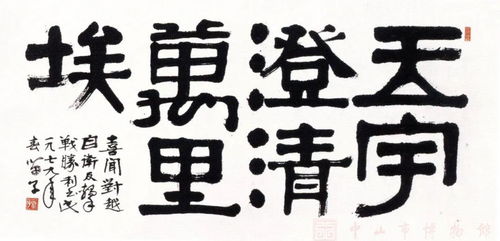 天宇
澄清
萬里
埃
喜聞對越
自衛反擊
戰勝利之
一九七九年
中山市博物館